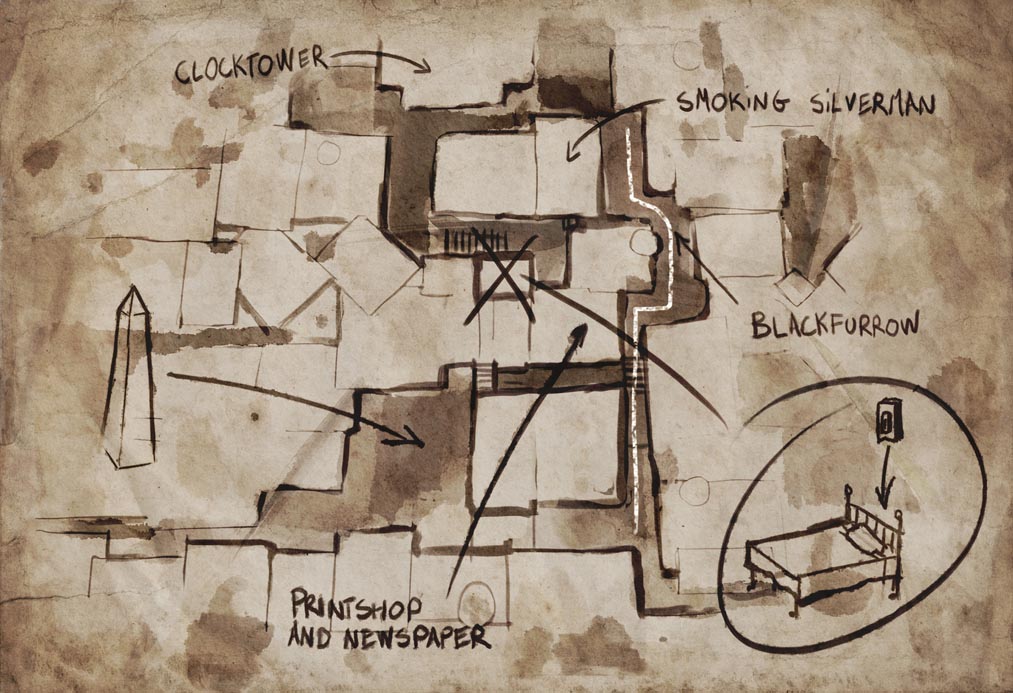 CLOCKTOWER
SMOKING SiLVERMAN
BLACKFURROW
PRINTSHOP
AND NEWSPAPER